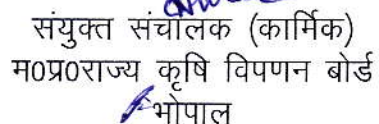 संयुक्त संचालक (कार्मिक)
म0प्र0राज्य कृषि विपणन बोर्ड
भोपाल